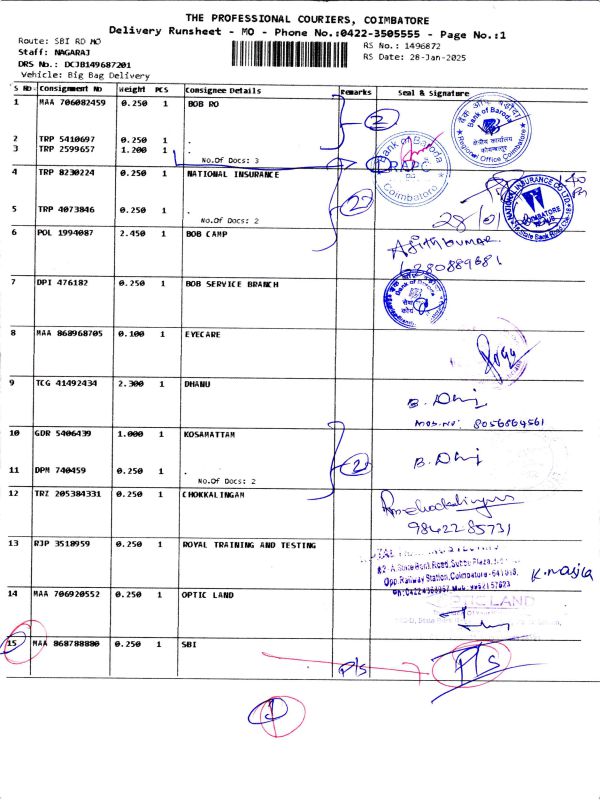 THE PROFESSIONAL COURIERS, COIMBATORE
Delivery Runsheet - MO - Phone No.:0422-3505555 - Page No.:1
Route: SBI RD MO
RS No.: 1496872
Staff: NAGARAJ
RS Date: 28-Jan-2025
DRS No.: DCJB149687201
Vehicle: Big Bag Delivery
S No Consignment No Weight PCS Consignee Details Remarks Seal & Signature
1 MAA 706082459 0.250 1 BOB RO
2 TRP 5410697 0.250 1 .
3 TRP 2599657 1.200 1 .
No.Of Docs: 3
4 TRP 8230224 0.250 1 NATIONAL INSURANCE
5 TRP 4073846 0.250 1 .
No.Of Docs: 2
6 POL 1994087 2.450 1 BOB CAMP
7 DPI 476182 0.250 1 BOB SERVICE BRANCH
8 MAA 868968705 0.100 1 EYECARE
9 TCG 41492434 2.300 1 DHANU
10 GDR 5406439 1.000 1 KOSAMATTAM
11 DPM 740459 0.250 1 .
No.Of Docs: 2
12 TRZ 205384331 0.250 1 CHOKKALINGAM
13 RJP 3518959 0.250 1 ROYAL TRAINING AND TESTING
14 MAA 706920552 0.250 1 OPTIC LAND
15 MAA 868788880 0.250 1 SBI P/S P/S
बैंक ऑफ़ बड़ौदा
Bank of Baroda
क्षेत्रीय कार्यालय
कोयम्बतूर
Regional Office Coimbatore
Bank of Baroda
Coimbatore
NATIONAL INSURANCE CO LTD
COIMBATORE
28/01
Ajithkumar
Bank of Baroda
B. Dhj
MOB.NO: 8056864561
B. Dhj
9842285731
82-A State Bank Road, Subbu Plaza,
Opp. Railway Station, Coimbatore - 641 018.
K. Majila
LAND